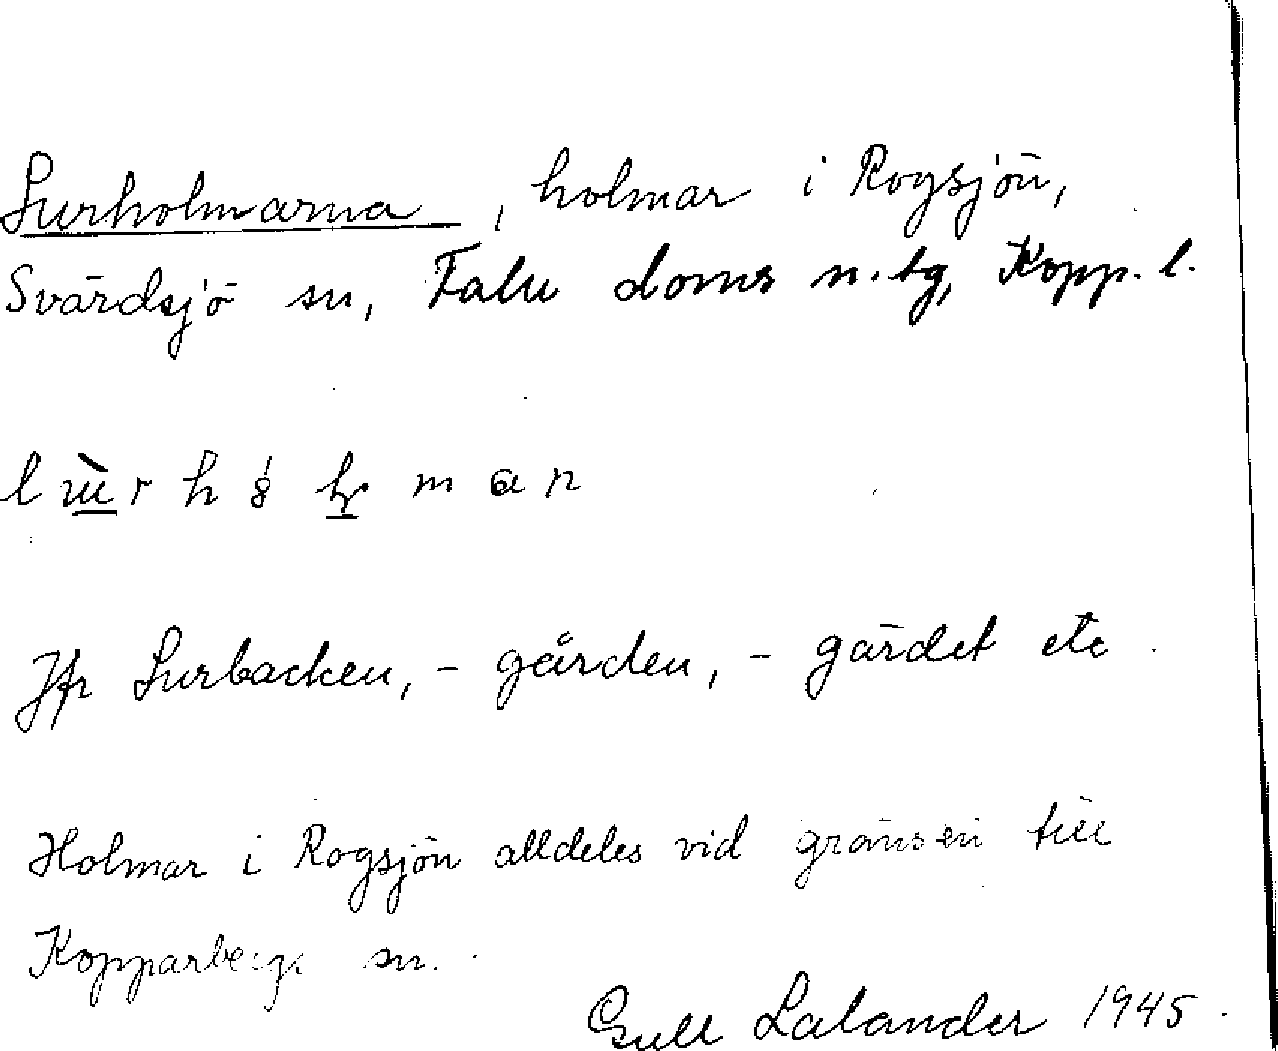 Lurholmarna, holmar i Rogsjön,
Svärdsjö sn, Falu doms n. tg, Kopp. l.
Jfr Lurbacken, - gården, - gärdet etc.
Holmar i Rogsjön alldeles vid gränsen till
Kopparbergs sn.
Gull Lalander 1945.